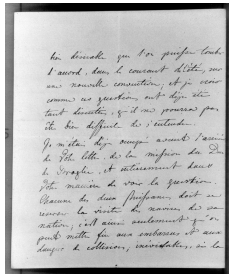 bien démontré que l'on puisse tomber
d'accord, dans le courant d'été, sur
une nouvelle convention, et je crois
comme ces questions ont déjà été
tant discutées, qu'il ne pourra pas
être bien difficile de s'entendre.
Je m'étais déjà occupé avant l'arrivée
de Votre lettre, de la mission du Duc
de Broglie, et entièrement dans
Votre manière de voir la question.
Chacune des deux Puissances doit se
réserver la visite de navires de sa
nation, c'est ainsi seulement qu'on
peut mettre fin aux embarras et aux
dangers de collisions, inévitables, si la